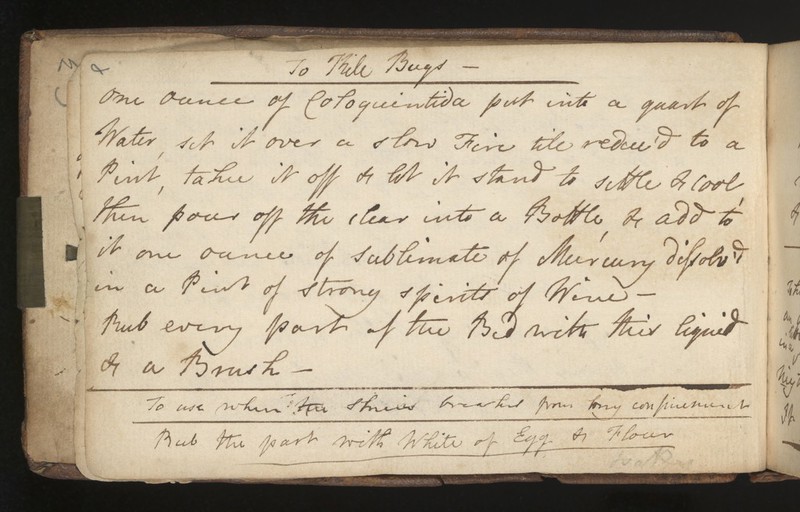 To Kile Bugs —
One ounce of Coloquintida put into a quart of
Water, set it over a slow Fire tile reduc'd to a
Pint, take it off & let it stand to settle & cool,
then pour off the clear into a Bottle, & add to
it one ounce of sublimate of Mercury dissolv'd
in a Pint of strong spirits of Wine —
Rub every part of the Bed with this liquid
& a Brush —
To use when the skin breaks from long confinement
Rub the part with White of Egg & Flour